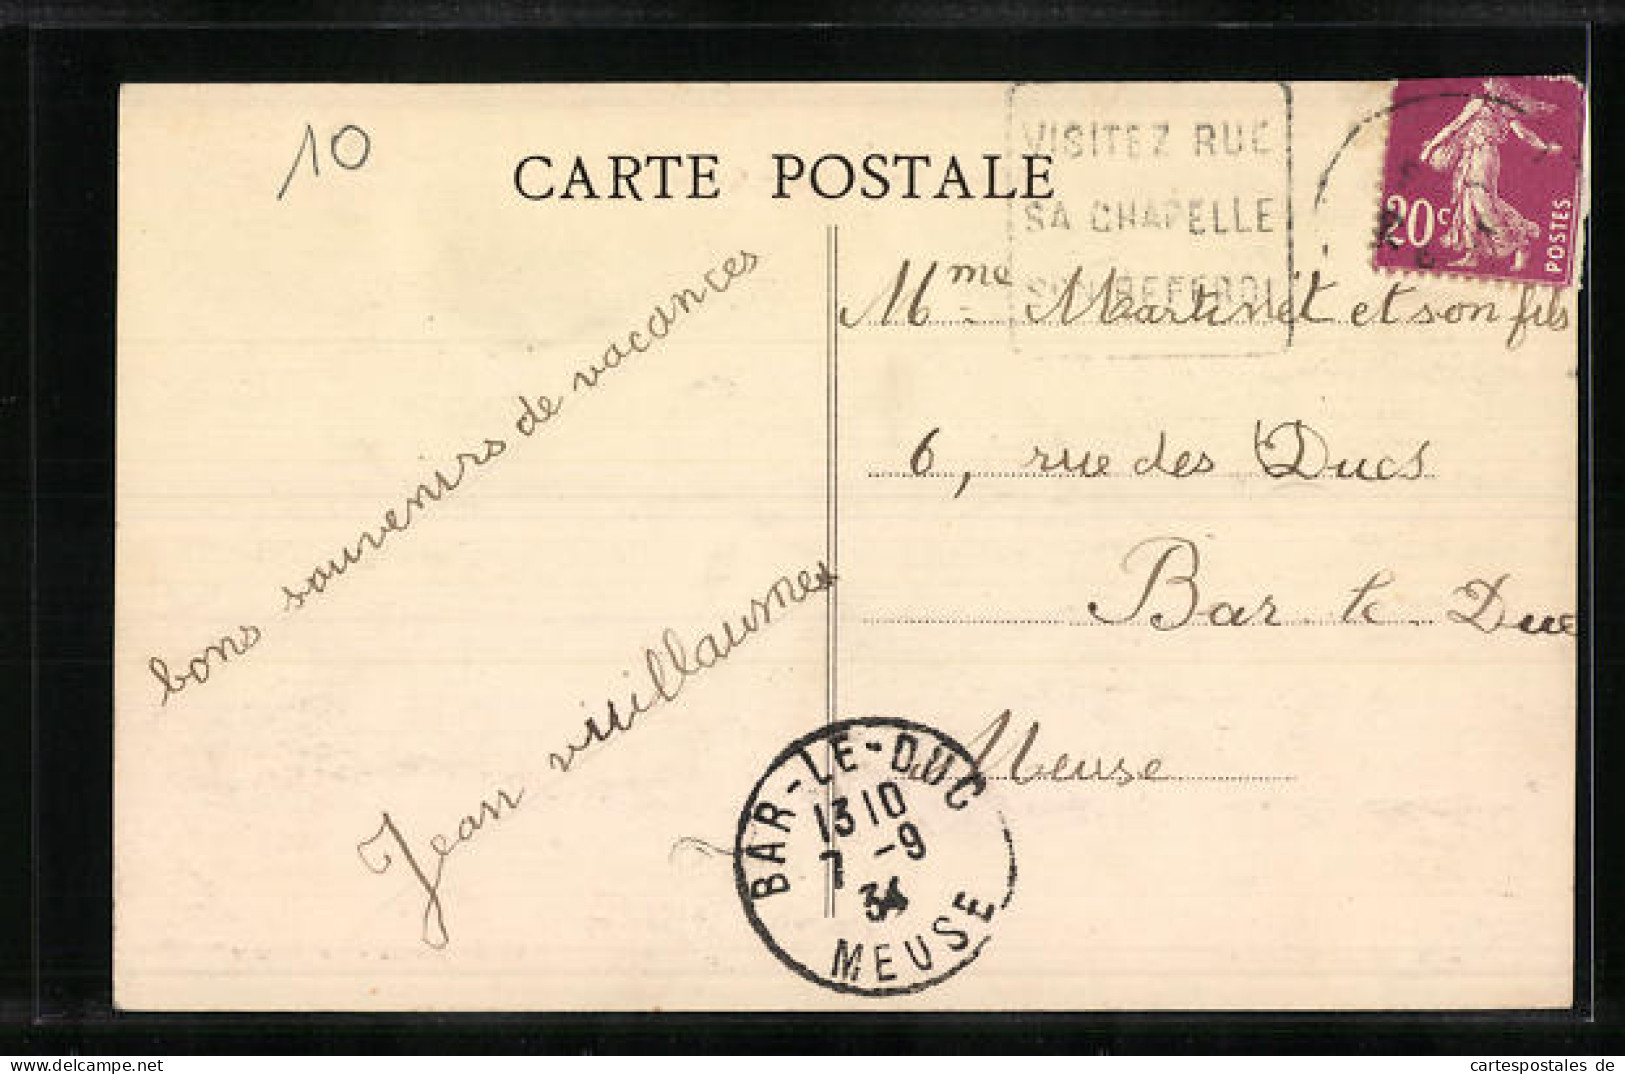 10
CARTE POSTALE
VISITEZ RUE
SA CHAPELLE
SON BEFFROI
20c
POSTES
bons souvenirs de vacances
Jean
Mme Martinet et son fils
6, rue des Ducs
Bar le Duc
Meuse
BAR-LE-DUC
13 10
7 -9
34
MEUSE
cartespostales de